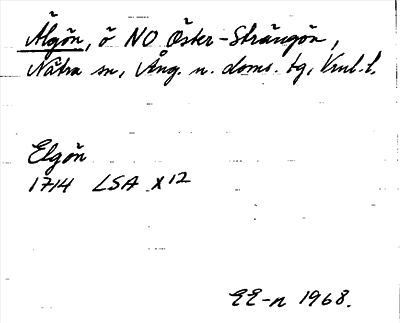 Älgön, ö NO Öster-Strängön,
Nätra sn, Ång. n. doms. tg, Vnl. l.
Elgön
1714 LSA X12
EE-n 1968.